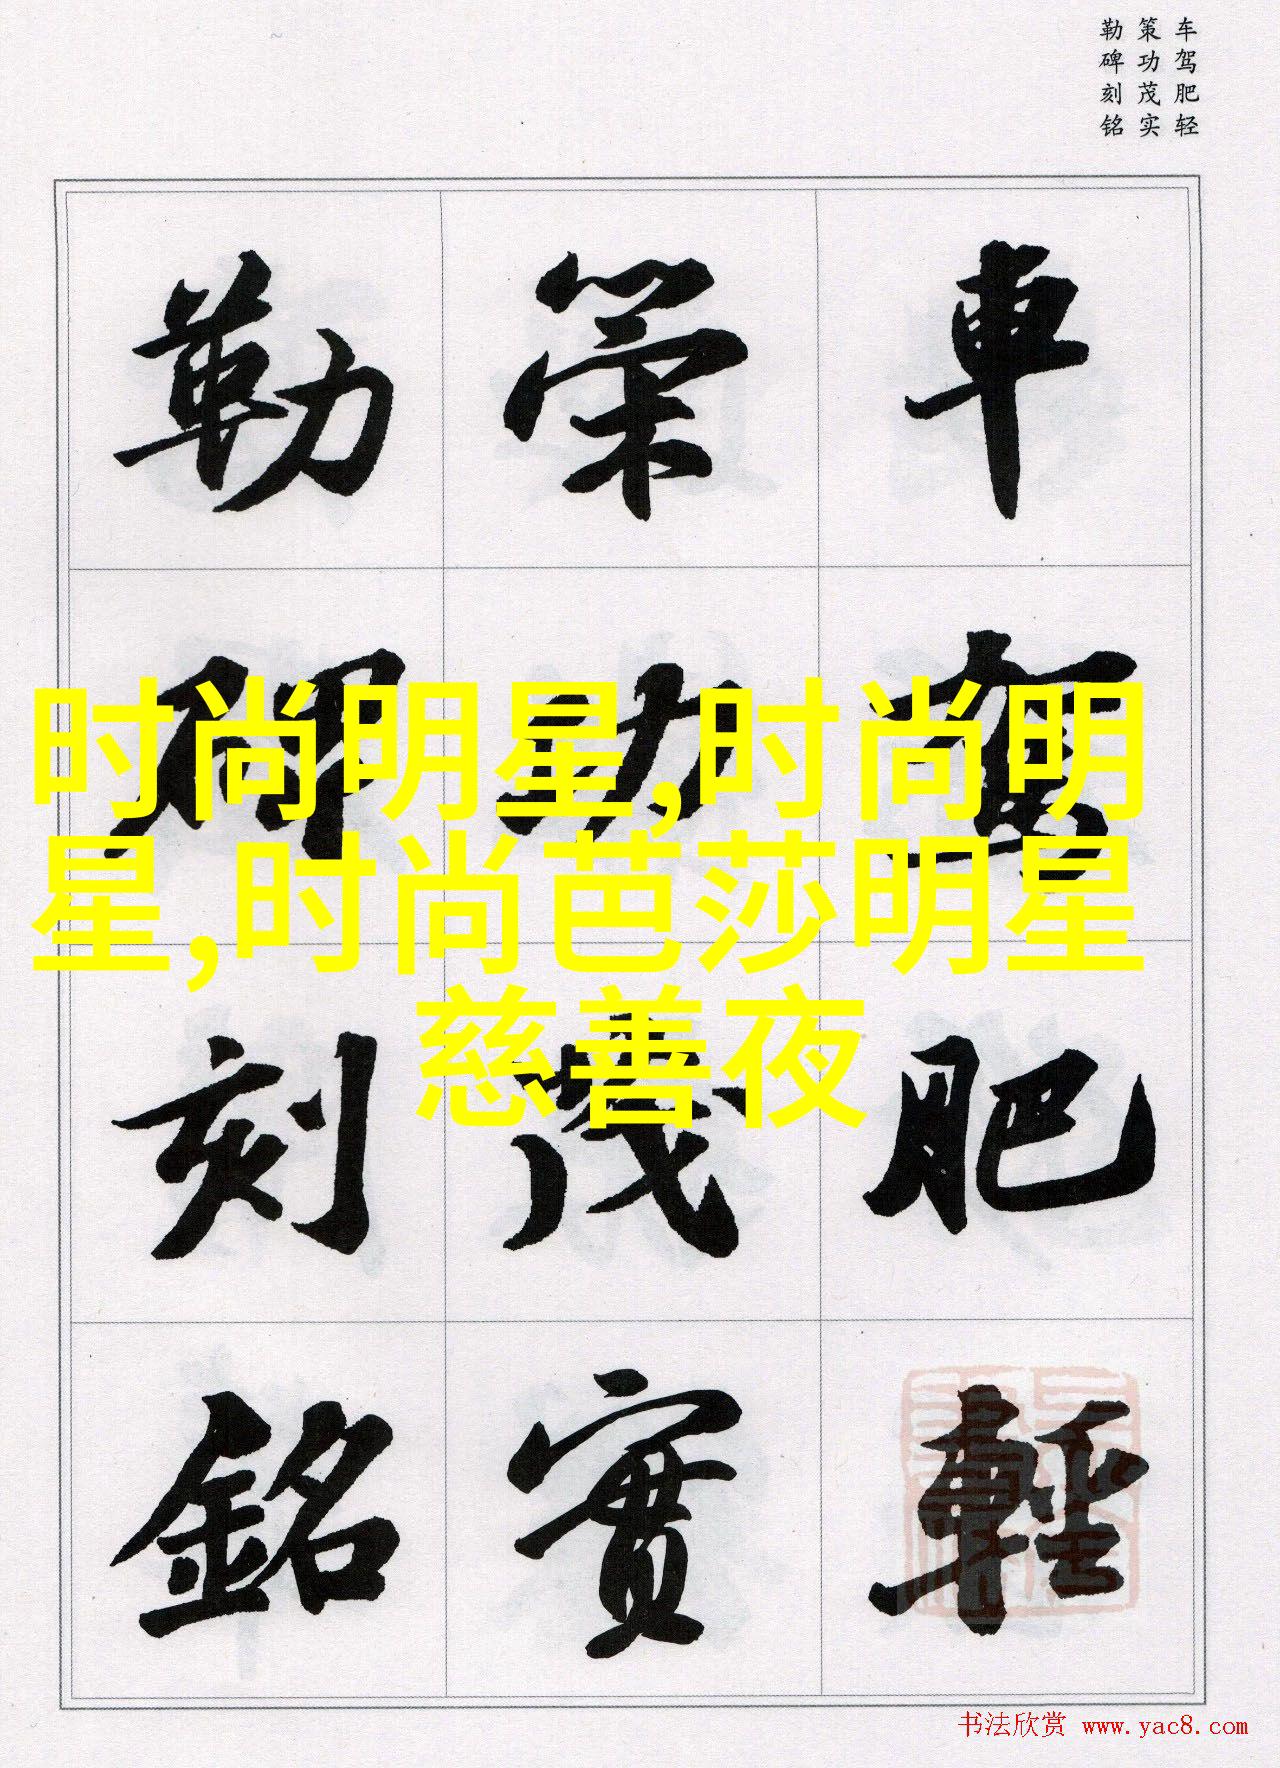 车驾肥轻
策功茂实
勒碑刻铭
車駕肥輕
策功茂實
勒碑刻銘
时尚明星,时尚明
星,时尚芭莎明星
慈善夜
书法欣赏 www.yac8.com